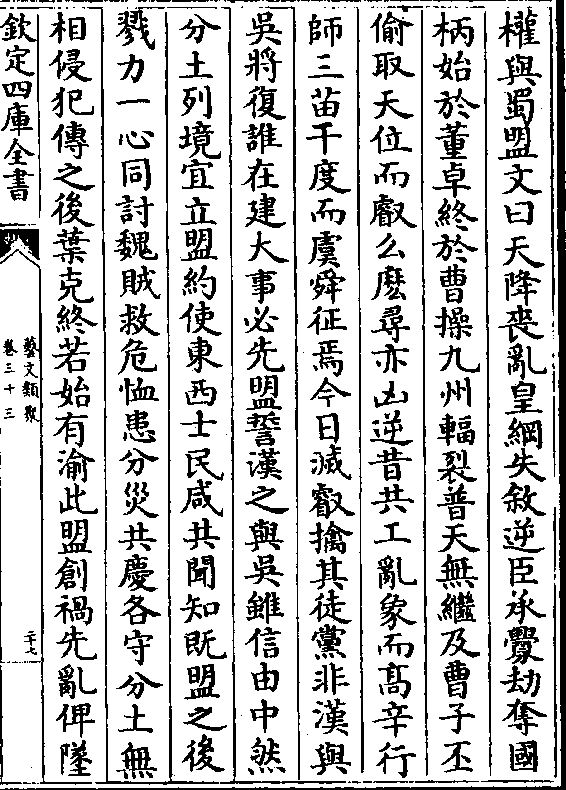 權與蜀盟文曰天降喪亂皇綱失敘逆臣承釁劫奪國
柄始於董卓終於曹操九州輻裂普天無繼及曹子丕
偷取天位而叡么麽尋亦凶逆昔共工亂象而髙辛行
師三苗干度而虞舜征焉今日滅叡擒其徒黨非漢與
吳將復誰在建大事必先盟誓漢之與吳雖信由中然
分土列境宜立盟約使東西士民咸共聞知既盟之後
戮力一心同討魏賊救危恤患分災共慶各守分土無
相侵犯傳之後葉克終若始有渝此盟創禍先亂俾墜
欽定四庫全書
藝文類聚
卷三十三
二十七